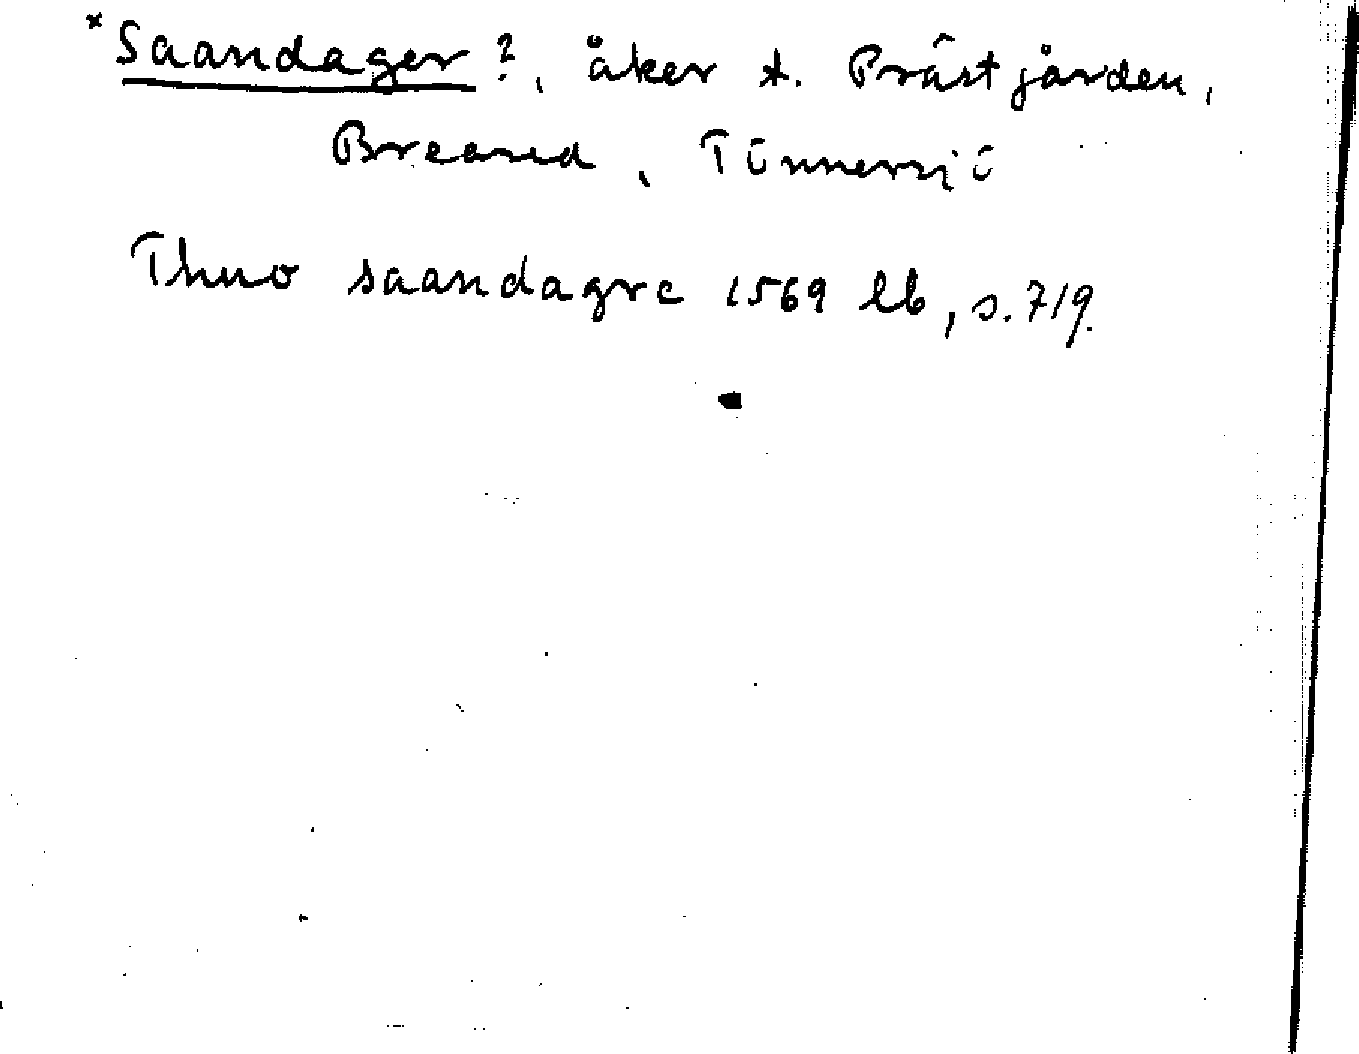 *Saandager?, åker t. Prästgården,
Breared, Tönnersjö
Thuo saandagre 1569 lb, s. 719.